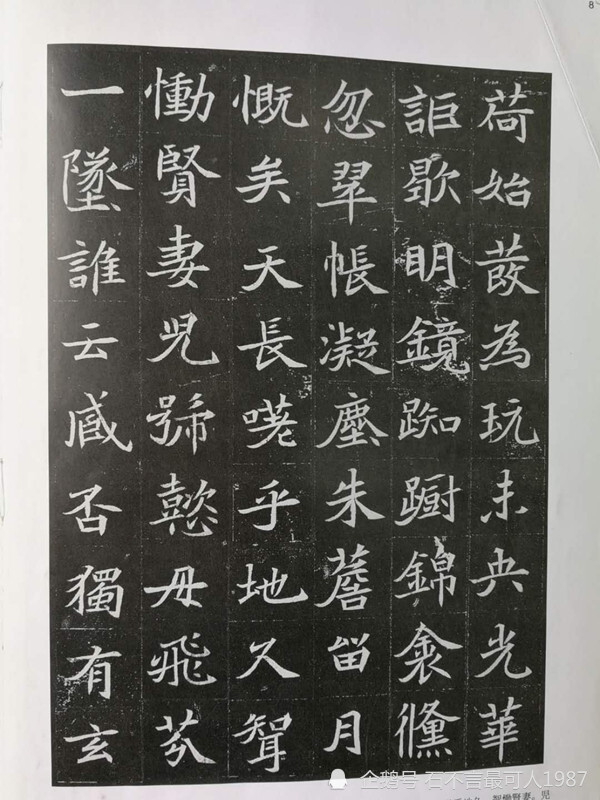 荷始菝為玩未央光華
詎歇明鏡踟蹰錦衾儵
忽翠帳凝塵朱簷留月
慨矣天長嗟乎地久
慟賢妻兒號懿母飛芬
一墜誰云臧否獨有玄
8
企鹅号 石不言最可人1987
賢妻。兒